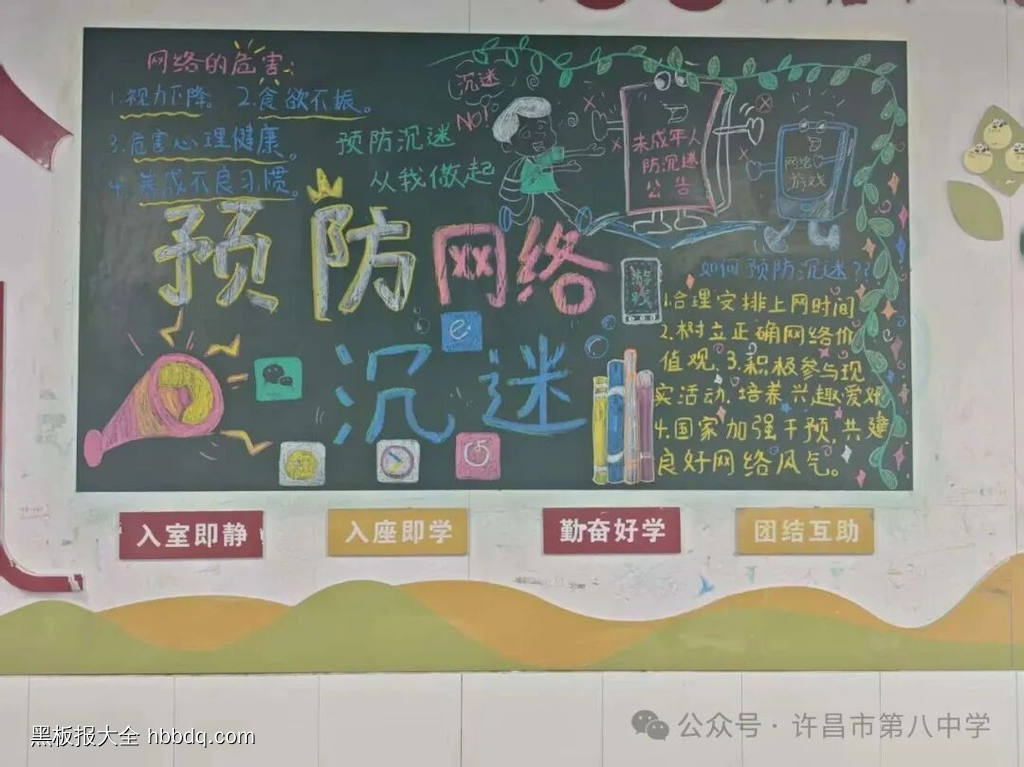 网络的危害:
1.视力下降。 2.食欲不振。
3.危害心理健康。
4.养成不良习惯。
预防沉迷
从我做起
沉迷
NO!
未成年人
防沉迷
公告
网络
游戏
预防网络
沉迷
游戏
如何预防沉迷??
1.合理安排上网时间
2.树立正确网络价
值观.3.积极参与现
实活动.培养兴趣爱好
4.国家加强干预,共建
良好网络风气。
入室即静
入座即学
勤奋好学
团结互助
黑板报大全 hbbdq.com
公众号·许昌市第八中学